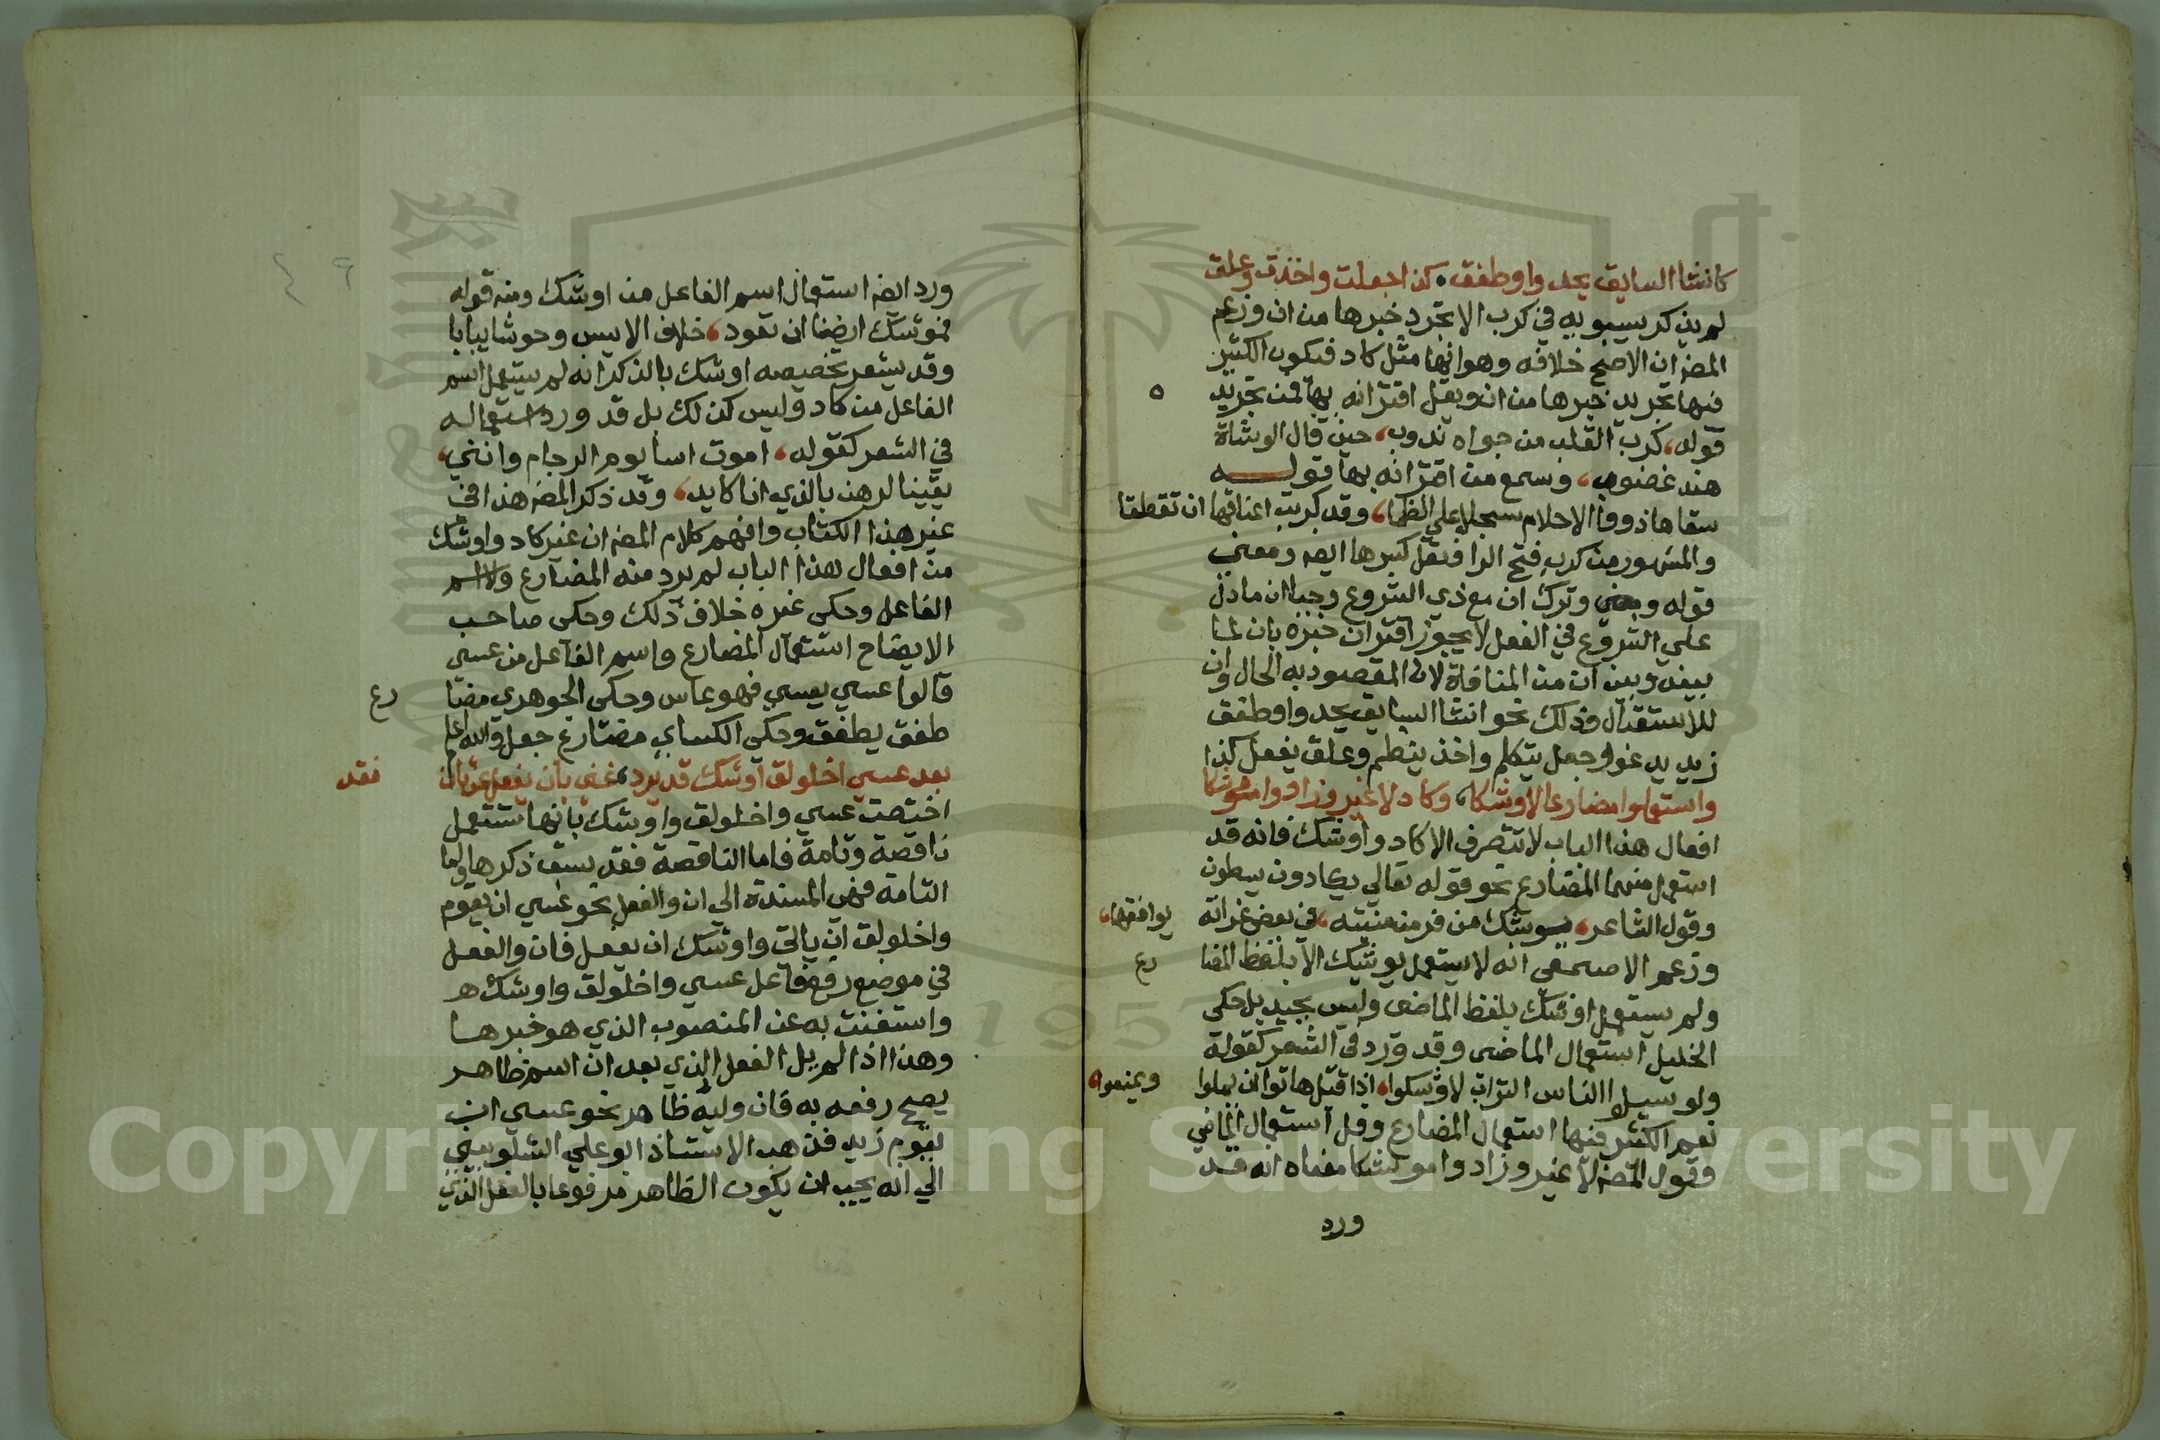 كانشا السايق يحدوا وطفق كذا جعلت واخذت وعلق
لم يذكر سيبويه في كرب الا تجرد خبرها من ان وزعم
المص ان الاصح خلافه وهو انها مثل كاد فيكون الكثير
فيها تجريد خبرها من ان ويقل اقترانه بها فمن تجريد ه
قوله كرب القلب من جواه يذوب حين قال الوشاة
هند غضوب وسمع من اقترانه بها قوله
سقاها ذووا الاحلام سجلا على الظما وقد كربت اعناقها ان تقطعا
والمشهور من كرب فتح الرا ونقل كسرها ايضه ومعنى
قوله وترك ان مع ذي الشروع وجبا ان ما دل
علي الشروع في الفعل لا يجوز اقتران خبره بان لما
بينه وبين ان من المنافاة لان المقصود به الحال وان
للاستقبال وذلك نحو انشا السايق يحدوا وطفق
زيد يدعوا وجعل يتكلم واخذ ينظم وعلق يفعل كذا
واستعملوا مضارعا لاوشكا وكاد لا غير وزادوا موشكا
افعال هذا الباب لا تتصرف الا كاد واوشك فانه قد
استعمل منهما المضارع نحو قوله تعالي يكادون يسطون
وقول الشاعر يوشك من فر من منيته في بعض غراته يوافقها
وزعم الاصمعى انه لا يستعمل يوشك الا بلفظ المضا رع
ولم يستعمل اوشك بلفظ الماضى وليس بجيد بل حكى
الخليل استعمال الماضى وقد ورد في الشعر كقوله
ولو سيلوا الناس التراب لاوشكوا اذا قيل هاتوا ان يملوا ويمنعوا
نعم الكثير فيها استعمال المضارع وقل استعمال الماضي
وقول المص لا غير وزادوا موشكا معناه انه قد
ورد
ورد ايضه استعمال اسم الفاعل من اوشك ومنه قوله
فموشكة ارضنا ان تعود خلاف الانيس وحوشا يبابا
وقد يشعر تخصيصه اوشك بالذكر انه لم يستعمل اسم
الفاعل من كاد وليس كذلك بل قد ورد استعماله
في الشعر كقوله اموت اسا يوم الرجام وانني
يقينا لرهن بالذي انا كايد وقد ذكر المص هذا في
غير هذا الكتاب وافهم كلام المص ان غير كاد واوشك
من افعال هذا الباب لم يرد منه المضارع ولا اسم
الفاعل وحكى غيره خلاف ذلك وحكى صاحب
الايضاح استعمال المضارع واسم الفاعل من عسى
قالوا عسي يعسي فهو عاس وحكى الجوهري مضا رع
طفق يطفق وحكى الكساي مضارع جعل والله اعلم
بعد عسي اخلولق اوشك قد يرد غني بان يفعل عن ثان فقد
اختصت عسي واخلولق واوشك بانها تستعمل
ناقصة وتامة فاما الناقصة فقد سبق ذكرها واما
التامة فهي المسندة الى ان والفعل نحو عسي ان يقوم
واخلولق ان ياتي واوشك ان يفعل فان والفعل
في موضع رفع فاعل عسي واخلولق واوشك
واستغنت به عن المنصوب الذي هو خبرها
وهذا اذا لم يل الفعل الذي بعد ان اسم ظاهر
يصح رفعه به فان وليه ظاهر نحو عسى ان
يقوم زيد فذهب الاستاذ ابو علي الشلوبين
الي انه يجب ان يكون الظاهر مرفوعا بالفعل الذي
٤٦
Copyright © King Saud University
1957